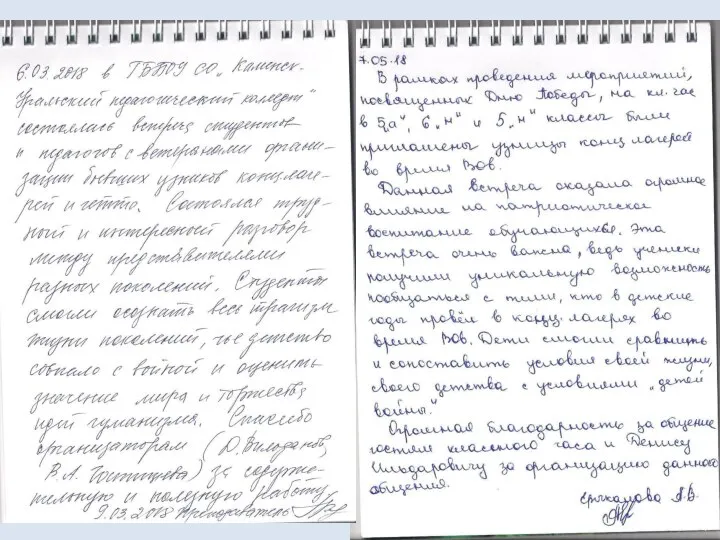 6.03.2018 в ГБПОУ СО „Каменск-
Уральский педагогический колледж“
состоялась встреча студентов
и педагогов с ветеранами органи-
зации бывших узников концлаге-
рей и гетто. Состоялся труд-
ный и интересный разговор
между представителями
разных поколений. Студенты
смогли осознать весь трагизм
жизни поколений, чьё детство
совпало с войной и оценить
значение мира и торжества
идей гуманизма. Спасибо
организаторам (Д.
В. А.) за содержа-
тельную и полезную работу
9.03.2018 Преподаватель
7.05.18
В рамках проведения мероприятий,
посвященных Дню Победы, на кл. час
в 5„а“, 6„н“ и 5„н“ классы были
приглашены узницы конц. лагерей
во время ВОВ.
Данная встреча оказала огромное
влияние на патриотическое
воспитание обучающихся. Эта
встреча очень важна, ведь ученики
получили уникальную возможность
пообщаться с теми, кто в детские
годы провёл в конц. лагерях во
время ВОВ. Дети смогли сравнить
и сопоставить условия своей жизни,
своего детства с условиями „детей
войны“.
Огромная благодарность за общение
гостям классного часа и Денису
Ильдаровичу за организацию данного
общения.
А.В.